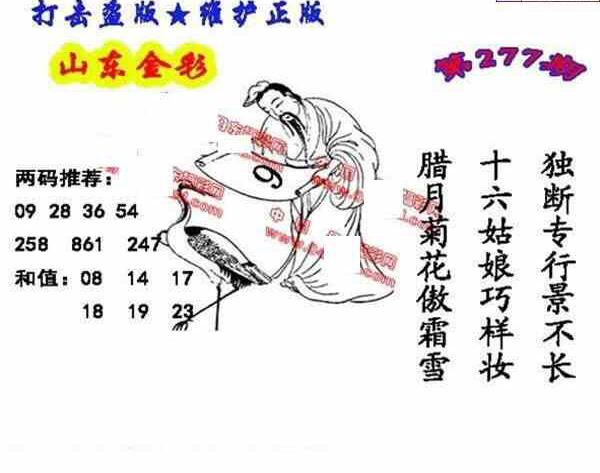 打击盗版★维护正版
山东金彩
第277期
两码推荐：
09 28 36 54
258 861 247
和值：08 14 17
18 19 23
9
独断专行景不长
十六姑娘巧样妆
腊月菊花傲霜雪